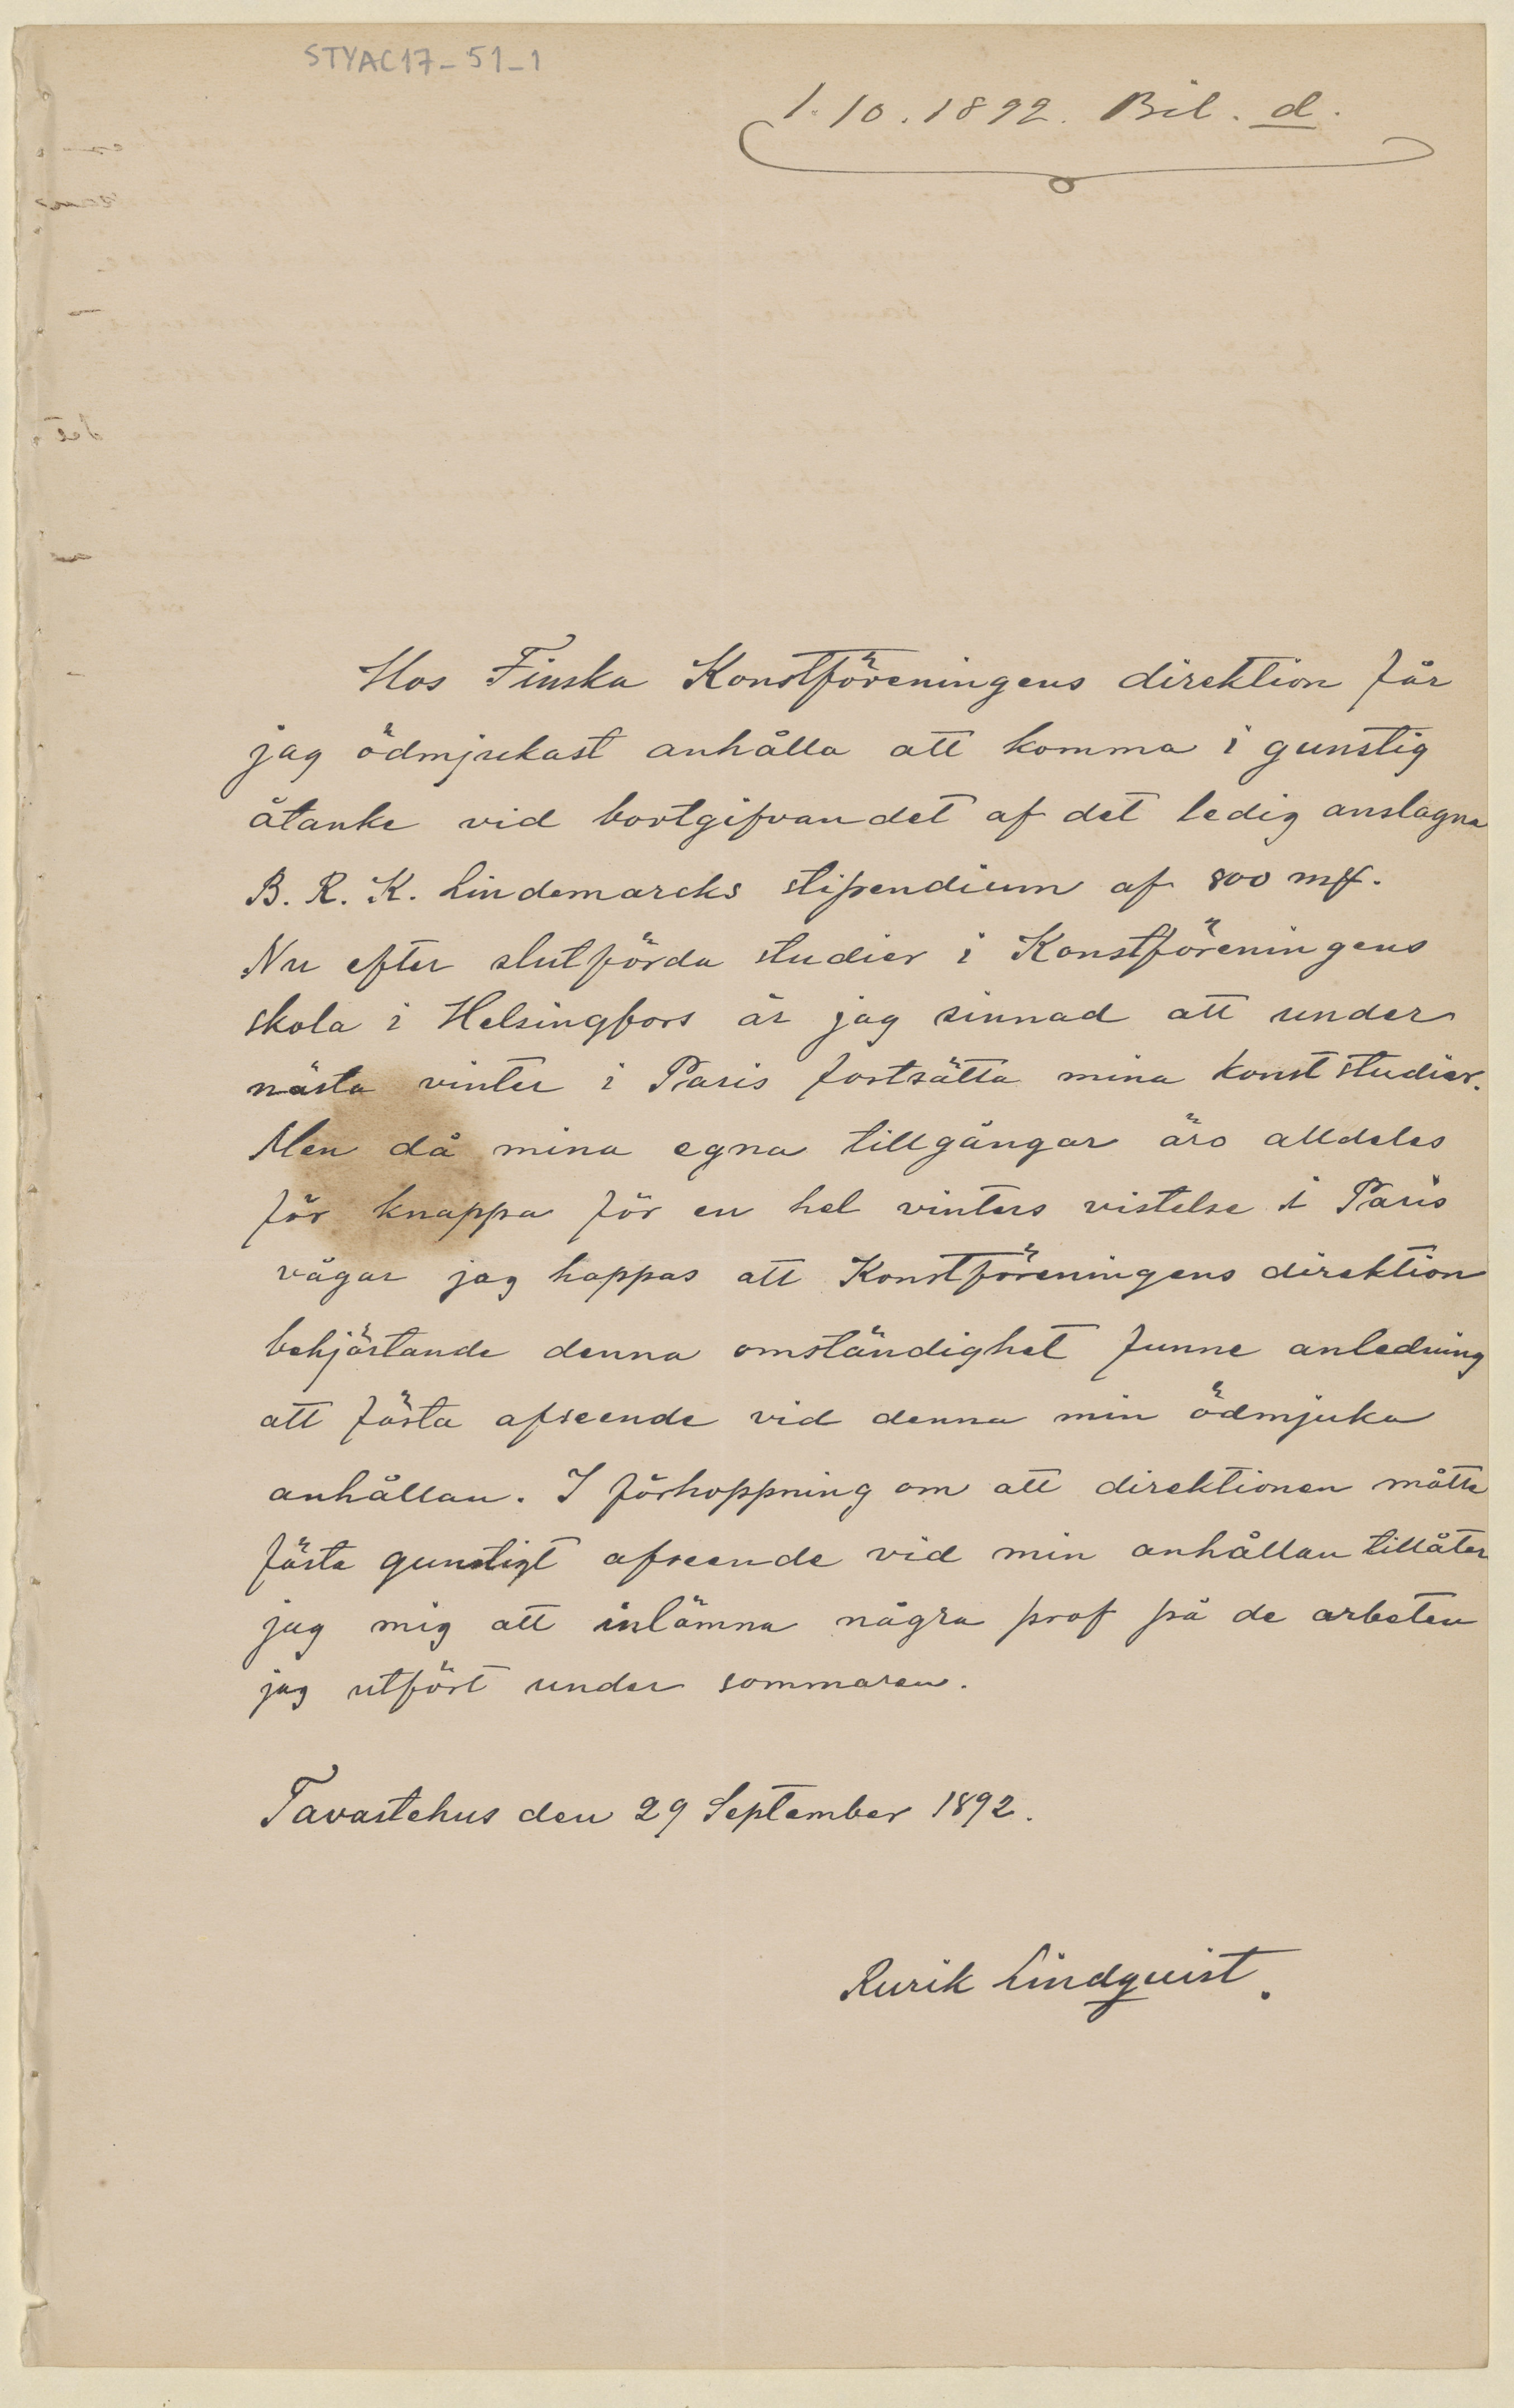 STYAC17-51-1
1.10.1892. Bil. d.
Hos Finska Konstföreningens direktion får
jag ödmjukast anhålla att komma i gunstig
åtanke vid bortgifvandet af det ledig anslagna
B. R. K. Lindemarcks stipendium af 800 mf.
Nu efter slutförda studier i Konstföreningens
skola i Helsingfors är jag sinnad att under
nästa vinter i Paris fortsätta mina konststudier.
Men då mina egna tillgångar äro alldeles
för knappa för en hel vinters vistelse i Paris
vågar jag hoppas att Konstföreningens direktion
behjärtande denna omständighet funne anledning
att fästa afseende vid denna min ödmjuka
anhållan. I förhoppning om att direktionen måtte
fästa gunstigt afseende vid min anhållan tillåter
jag mig att inlämna några prof på de arbeten
jag utfört under sommaren.
Tavastehus den 29 September 1892.
Rurik Lindquist.